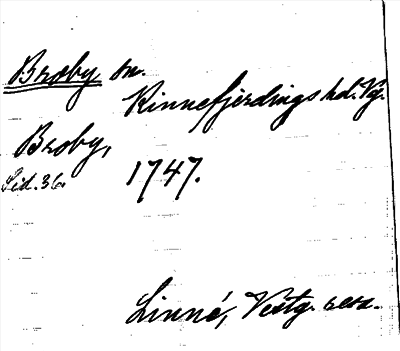 Broby sn.
Kinnefjerdings hd. Vg.
Broby,
Sid. 36.
1747.
Linné, Vestg. resa.